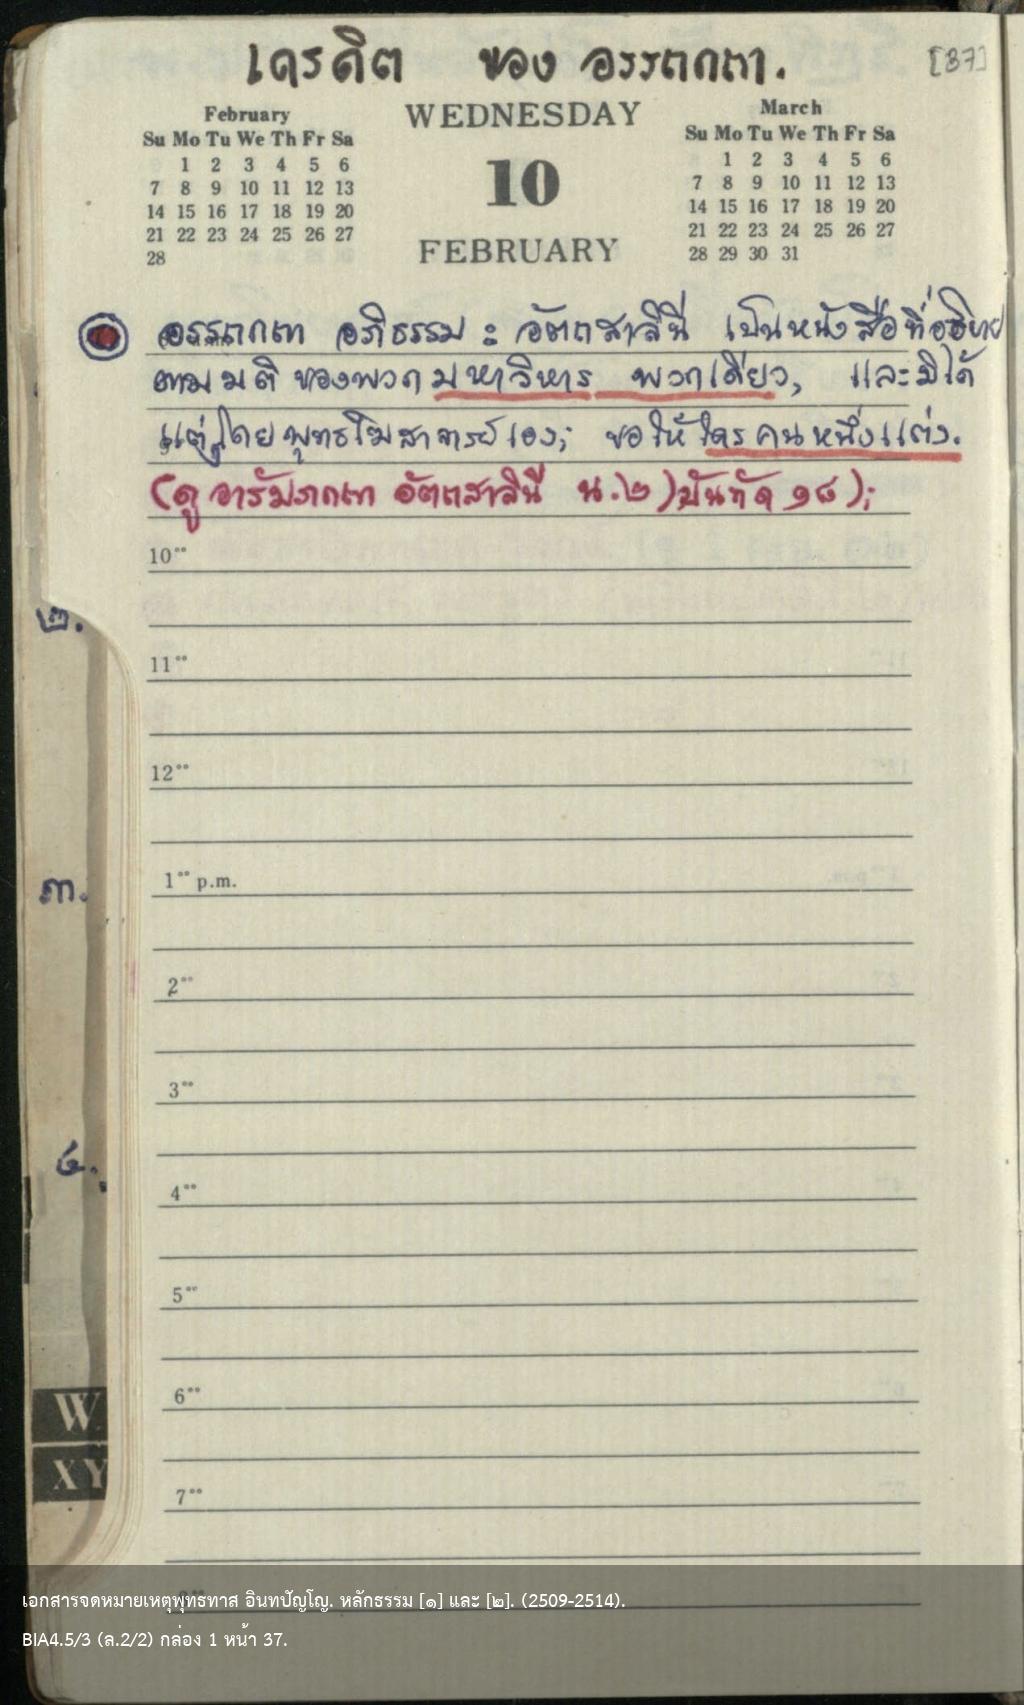 เครดิต ของ อรรถกถา.
[37]
February
Su Mo Tu We Th Fr Sa
1 2 3 4 5 6
7 8 9 10 11 12 13
14 15 16 17 18 19 20
21 22 23 24 25 26 27
28
WEDNESDAY
10
FEBRUARY
March
Su Mo Tu We Th Fr Sa
1 2 3 4 5 6
7 8 9 10 11 12 13
14 15 16 17 18 19 20
21 22 23 24 25 26 27
28 29 30 31
อรรถกถา อภิธรรม : อัตถสาลินี เป็นหนังสือที่อธิบาย
ตามมติ ของพวก มหาวิหาร พวกเดียว, และมิได้
แต่งโดย พุทธโฆสาจารย์เอง; ขอให้ใครคนหนึ่งแต่ง.
(ดู อารัมภกถา อัตถสาลินี น.๒) บันทัด ๑๘);
10°°
๒.
11°°
12°°
1°° p.m.
๓.
2°°
3°°
๔.
4°°
5°°
6°°
W
XY
7°°
เอกสารจดหมายเหตุพุทธทาส อินทปัญโญ. หลักธรรม [๑] และ [๒]. (2509-2514).
BIA4.5/3 (ล.2/2) กล่อง 1 หน้า 37.